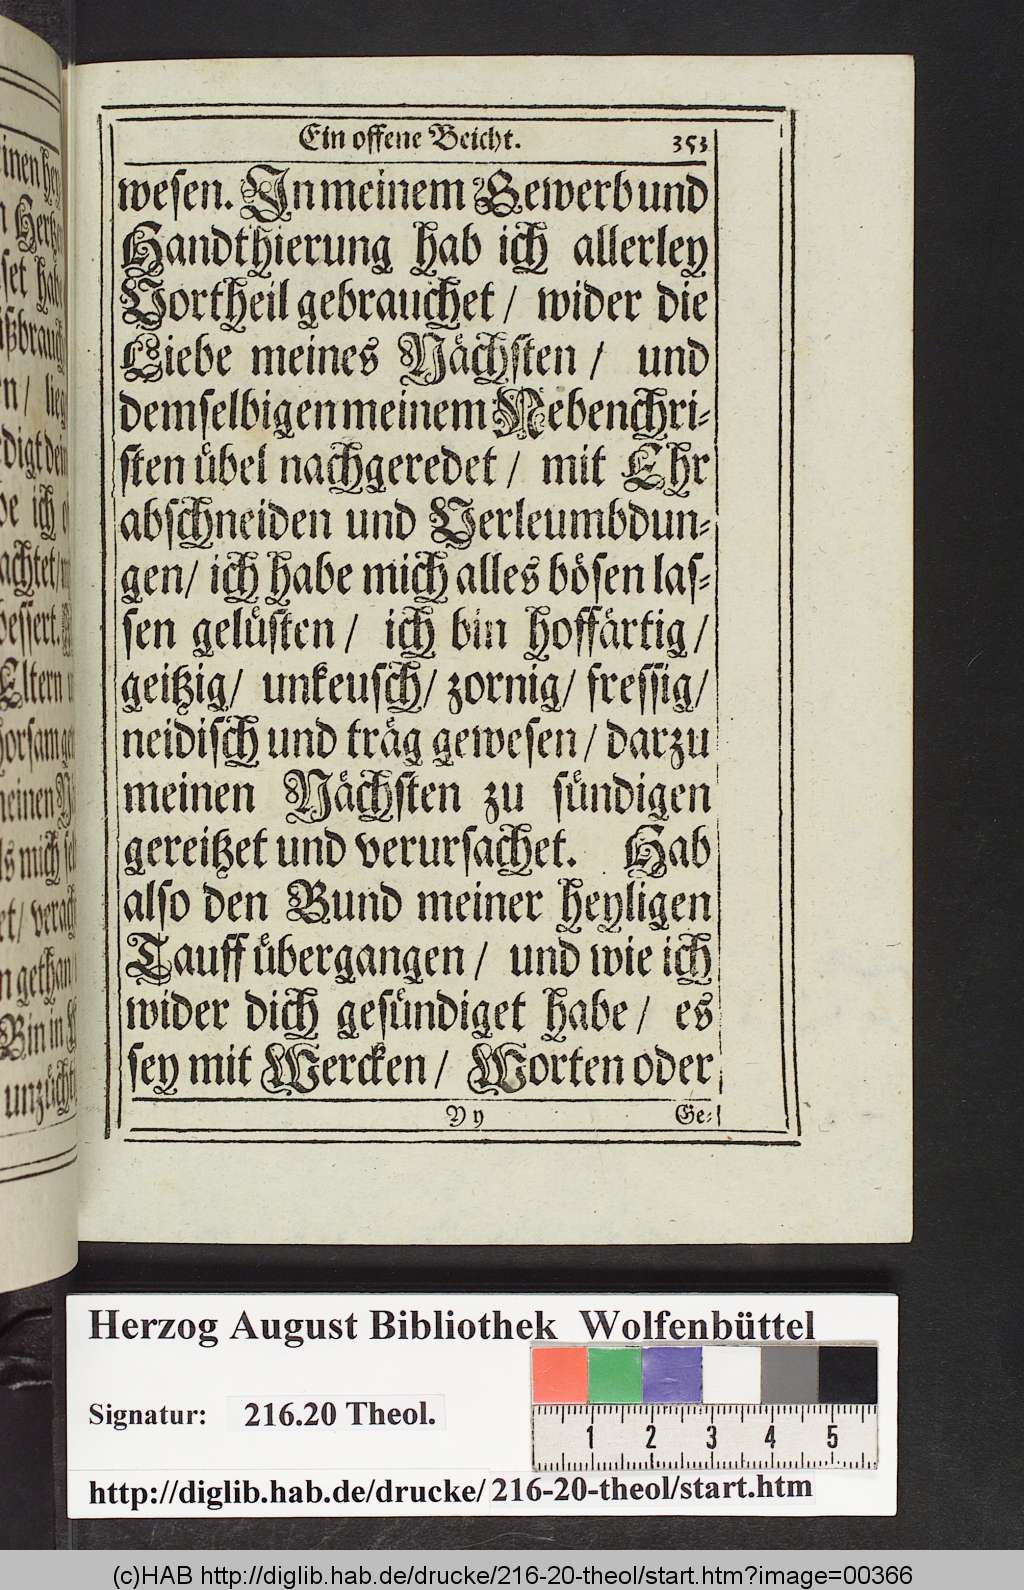 Ein offene Beicht. 353
wesen. In meinem Gewerb und
Handthierung hab ich allerley
Vortheil gebrauchet / wider die
Liebe meines Nächsten / und
demselbigen meinem Nebenchri-
sten übel nachgeredet / mit Ehr
abschneiden und Verleumbdun-
gen / ich habe mich alles bösen las-
sen gelüsten / ich bin hoffärtig /
geitzig / unkeusch / zornig / fressig /
neidisch und träg gewesen / darzu
meinen Nächsten zu sündigen
gereitzet und verursachet. Hab
also den Bund meiner heyligen
Tauff übergangen / und wie ich
wider dich gesündiget habe / es
sey mit Wercken / Worten oder
Y y Ge-
Herzog August Bibliothek Wolfenbüttel
Signatur: 216.20 Theol.
1 2 3 4 5
http://diglib.hab.de/drucke/216-20-theol/start.htm
(c)HAB http://diglib.hab.de/drucke/216-20-theol/start.htm?image=00366